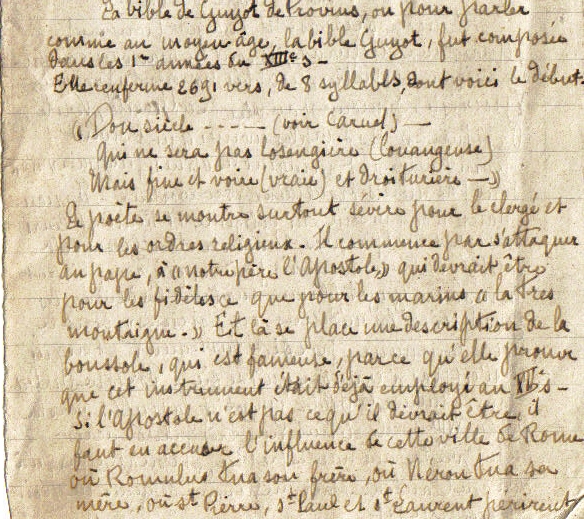 La bible de Guyot de Provins, ou pour parler
comme au moyen âge, la bible Guyot, fut composée
dans les 1res années du XIIIe s -
Elle renferme 2691 vers, de 8 syllabes, dont voici le début.
« Dou siècle ----- (voir Caruel) —
Qui ne sera pas losengière (louangeuse)
Mais fine et voire (vraie) et droiturière — »
Le poète se montre surtout sévère pour le clergé et
pour les ordres religieux. Il commence par s'attaquer
au pape, à « notre père l'Apostole, » qui devrait être
pour les fidèles ce que pour les marins « la tres
montaigne. » Et là se place une description de la
boussole, qui est fameuse, parce qu'elle prouve
que cet instrument était déjà employé au s -
Si l'Apostole n'est pas ce qu'il devrait être, il
faut en accuser l'influence de cette ville de Rome
où Romulus tua son frère, où Néron tua sa
mère, où st Pierre, st Paul et st Laurent périrent